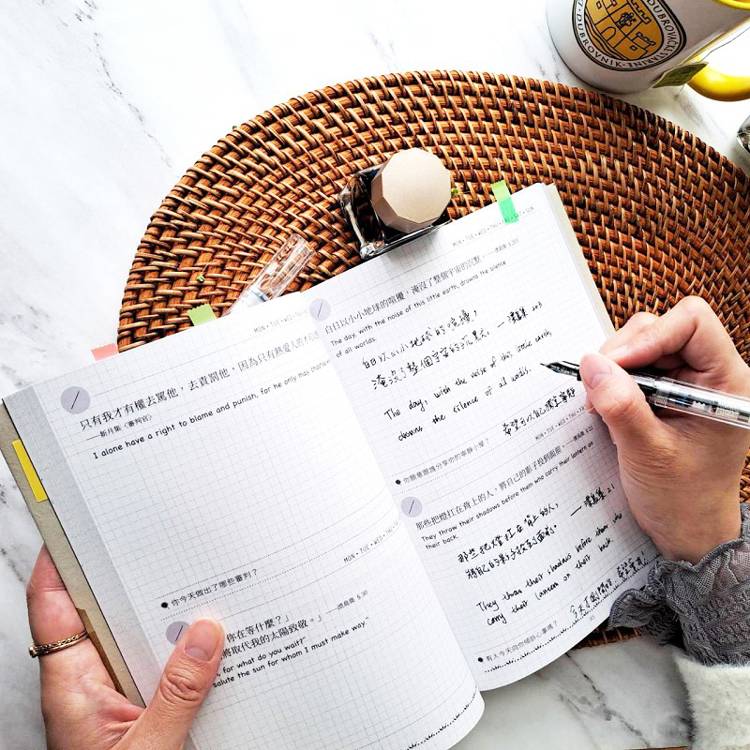 DUBROVNIK
MON・TUE・WED
只有我才有權去罵他，去責罰他，因為只有熱愛人的
——新月集〈審判官〉
I alone have a right to blame and punish, for he only may
MON・TUE・WED・THU
你今天做出了哪些審判？
你在等什麼？」
將取代我的太陽致敬。」——漂鳥集
for what do you wait?"
salute the sun for whom I must make way"
MON・TUE・WED・THU
白日以小小地球的喧擾，淹沒了整個宇宙的沉默。——漂鳥集
The day, with the noise of this little earth, drowns the silence
of all worlds.
白日以小小地球的喧擾，
淹沒了整個宇宙的沉默。——漂鳥集
The day, with the noise of this little earth,
drowns the silence of all worlds.
你願意跟誰分享你的寧靜小屋？
MON・TUE・WED・THU
那些把燈扛在背上的人，將自己的影子投到面前。——漂鳥集
They throw their shadows before them who carry their lantern on
their back.
那些把燈扛在背上的人，
將自己的影子投到面前。——漂鳥集
They throw their shadows before them who
carry their lantern on their back.
有人今天向你傾訴心事嗎？